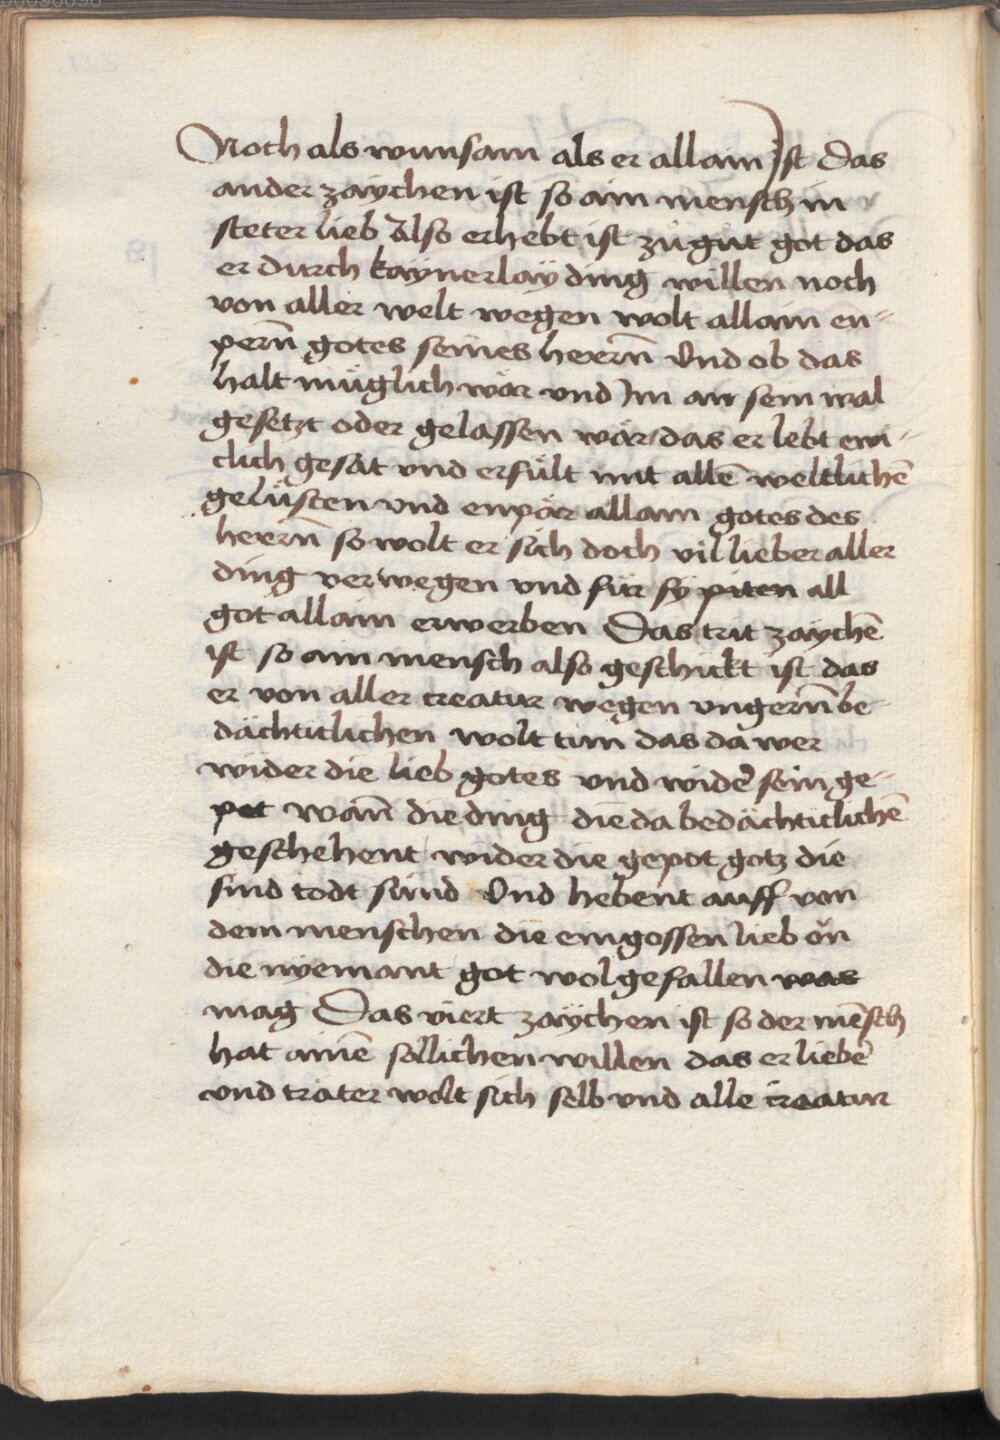 Noch als wunsam als er allain ist Das
ander zaychen ist so ain mensch in
steter lieb Also erhebt ist zů gůt got das
er durch kaynerlaÿ ding willen noch
von aller welt wegen wolt allain en-
pern̄ gotes seines herrn̄ Vnd ob das
halt müglich wär vnd Im an sein wal
gesetzt oder gelassen wär das er lebt ewi-
clich gesät vnd erfült mit allē weltlichē
gelüsten vnd enpär allain gotes des
herrn̄ so wolt er sich doch vil lieber aller
ding verwegen vnd für sÿ piten all
got allain erwerben Das trit zaychē
ist so ain mensch also geschickt ist das
er von aller creatur wegen vngern̄ be-
dächticlichen wolt tun das da wer
wider die lieb gotes vnd wider̄ sein ge-
pot wan̄ die ding die da bedächticlichē
geschehent wider die gepot gotz die
sind todt sünd Vnd hebent auff von
dem menschen die eingossen lieb ön
die nyemant got wolgefallen was
mag Das viert zaychen ist so der mēsch
hat ainē sölichen willen das er lieber̄
vnd träter wolt sich selb vnd alle creatur